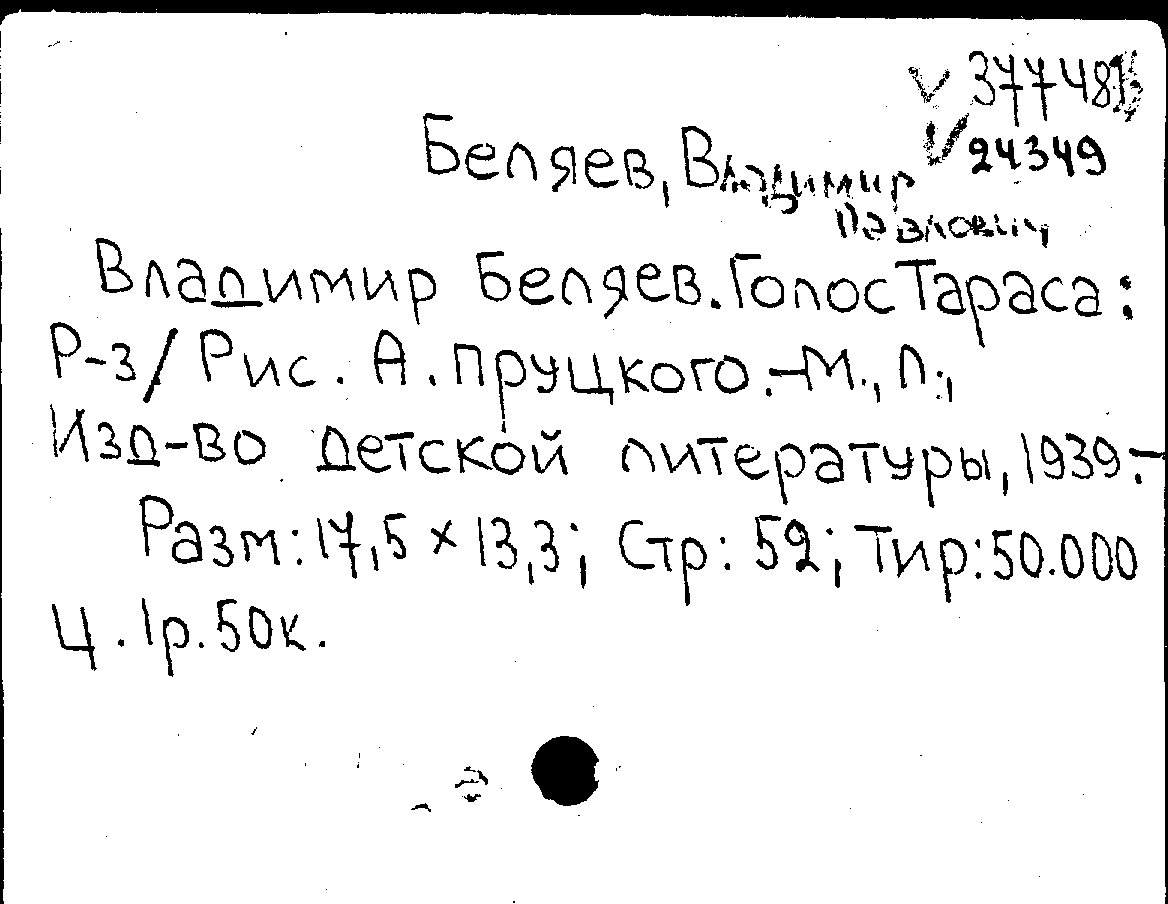 37748
24349
Беляев, Владимир
Павлович
Владимир Беляев. Голос Тараса:
Р-з/ Рис. А. Пруцкого.-М., Л.,
Изд-во детской литературы, 1939.-
Разм: 17,5 x 13,3; Стр: 52; Тир: 50.000
Ц. 1р. 50к.